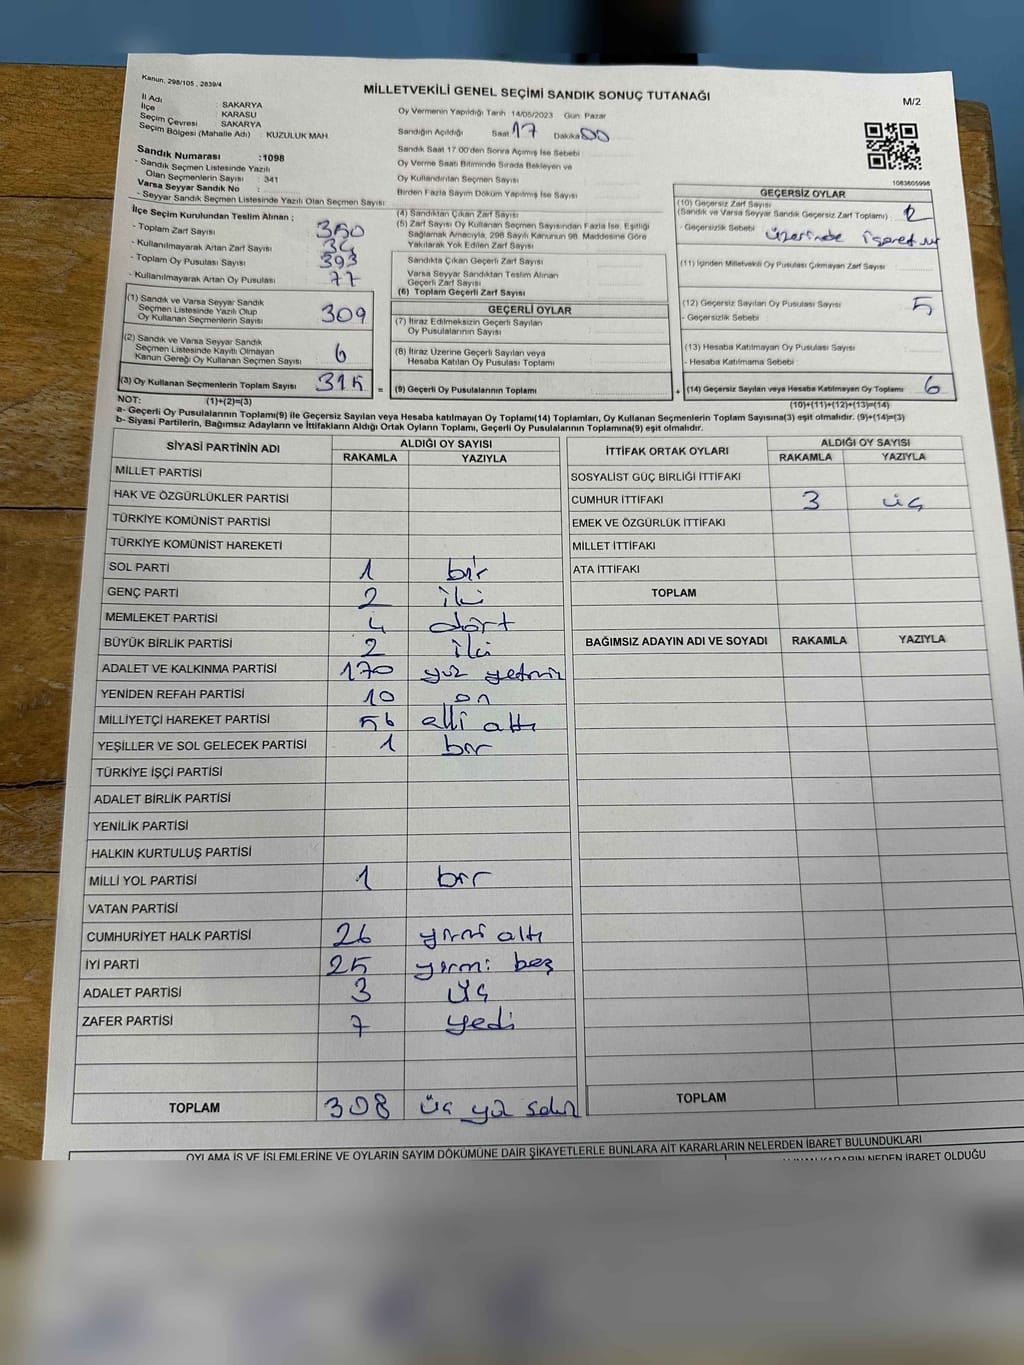 Kanun, 298/105 , 2839/4
MİLLETVEKİLİ GENEL SEÇİMİ SANDIK SONUÇ TUTANAĞI
M/2
İl Adı : SAKARYA
İlçe : KARASU
Seçim Çevresi : SAKARYA
Seçim Bölgesi (Mahalle Adı) : KUZULUK MAH.
Sandık Numarası :1098
- Sandık Seçmen Listesinde Yazılı
Olan Seçmenlerin Sayısı : 341
Varsa Seyyar Sandık No :
- Seyyar Sandık Seçmen Listesinde Yazılı Olan Seçmen Sayısı :
Oy Vermenin Yapıldığı Tarih 14/05/2023 Gün Pazar
Sandığın Açıldığı Saat 17 Dakika 00
Sandık Saat 17:00'den Sonra Açılmış İse Sebebi
Oy Verme Saati Bitiminde Sırada Bekleyen ve
Oy Kullandırılan Seçmen Sayısı
Birden Fazla Sayım Döküm Yapılmış İse Sayısı
1083605998
İlçe Seçim Kurulundan Teslim Alınan ;
- Toplam Zarf Sayısı 350
- Kullanılmayarak Artan Zarf Sayısı 34
- Toplam Oy Pusulası Sayısı 393
- Kullanılmayarak Artan Oy Pusulası 77
(1) Sandık ve Varsa Seyyar Sandık
Seçmen Listesinde Yazılı Olup
Oy Kullanan Seçmenlerin Sayısı 309
(2) Sandık ve Varsa Seyyar Sandık
Seçmen Listesinde Kayıtlı Olmayan
Kanun Gereği Oy Kullanan Seçmen Sayısı 6
(3) Oy Kullanan Seçmenlerin Toplam Sayısı 315 =
(4) Sandıktan Çıkan Zarf Sayısı
(5) Zarf Sayısı Oy Kullanan Seçmen Sayısından Fazla İse, Eşitliği
Sağlamak Amacıyla, 298 Sayılı Kanunun 98. Maddesine Göre
Yakılarak Yok Edilen Zarf Sayısı
Sandıkta Çıkan Geçerli Zarf Sayısı
Varsa Seyyar Sandıktan Teslim Alınan
Geçerli Zarf Sayısı
(6) Toplam Geçerli Zarf Sayısı
GEÇERLİ OYLAR
(7) İtiraz Edilmeksizin Geçerli Sayılan
Oy Pusulalarının Sayısı
(8) İtiraz Üzerine Geçerli Sayılan veya
Hesaba Katılan Oy Pusulası Toplamı
(9) Geçerli Oy Pusulalarının Toplamı +
GEÇERSİZ OYLAR
(10) Geçersiz Zarf Sayısı
(Sandık ve Varsa Seyyar Sandık Geçersiz Zarf Toplamı)
- Geçersizlik Sebebi : üzerinde işaret var
(11) İçinden Milletvekili Oy Pusulası Çıkmayan Zarf Sayısı
(12) Geçersiz Sayılan Oy Pusulası Sayısı 5
- Geçersizlik Sebebi
(13) Hesaba Katılmayan Oy Pusulası Sayısı
- Hesaba Katılmama Sebebi
(14) Geçersiz Sayılan veya Hesaba Katılmayan Oy Toplamı 6
NOT: (1)+(2)=(3) (10)+(11)+(12)+(13)=(14)
a- Geçerli Oy Pusulalarının Toplamı(9) ile Geçersiz Sayılan veya Hesaba katılmayan Oy Toplamı(14) Toplamları, Oy Kullanan Seçmenlerin Toplam Sayısına(3) eşit olmalıdır. (9)+(14)=(3)
b- Siyasi Partilerin, Bağımsız Adayların ve İttifakların Aldığı Ortak Oyların Toplamı, Geçerli Oy Pusulalarının Toplamına(9) eşit olmalıdır.
SİYASİ PARTİNİN ADI ALDIĞI OY SAYISI
RAKAMLA YAZIYLA
MİLLET PARTİSİ
HAK VE ÖZGÜRLÜKLER PARTİSİ
TÜRKİYE KOMÜNİST PARTİSİ
TÜRKİYE KOMÜNİST HAREKETİ
SOL PARTİ 1 bir
GENÇ PARTİ 2 iki
MEMLEKET PARTİSİ 4 dört
BÜYÜK BİRLİK PARTİSİ 2 iki
ADALET VE KALKINMA PARTİSİ 170 yüz yetmiş
YENİDEN REFAH PARTİSİ 10 on
MİLLİYETÇİ HAREKET PARTİSİ 56 elli altı
YEŞİLLER VE SOL GELECEK PARTİSİ 1 bir
TÜRKİYE İŞÇİ PARTİSİ
ADALET BİRLİK PARTİSİ
YENİLİK PARTİSİ
HALKIN KURTULUŞ PARTİSİ
MİLLİ YOL PARTİSİ 1 bir
VATAN PARTİSİ
CUMHURİYET HALK PARTİSİ 26 yirmi altı
İYİ PARTİ 25 yirmi beş
ADALET PARTİSİ 3 üç
ZAFER PARTİSİ 7 yedi
TOPLAM 308 üç yüz sekiz
İTTİFAK ORTAK OYLARI ALDIĞI OY SAYISI
RAKAMLA YAZIYLA
SOSYALİST GÜÇ BİRLİĞİ İTTİFAKI
CUMHUR İTTİFAKI 3 üç
EMEK VE ÖZGÜRLÜK İTTİFAKI
MİLLET İTTİFAKI
ATA İTTİFAKI
TOPLAM
BAĞIMSIZ ADAYIN ADI VE SOYADI RAKAMLA YAZIYLA
TOPLAM
OYLAMA İŞ VE İŞLEMLERİNE VE OYLARIN SAYIM DÖKÜMÜNE DAİR ŞİKAYETLERLE BUNLARA AİT KARARLARIN NELERDEN İBARET BULUNDUKLARI
KARARIN NEDEN İBARET OLDUĞU